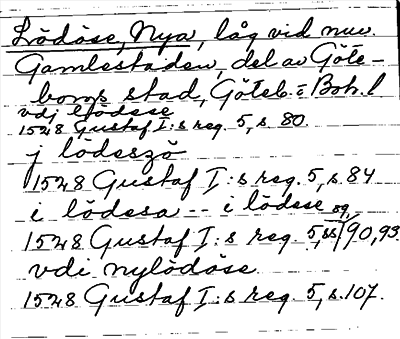 Lödöse, Nya, låg vid nuv.
Gamlestaden, del av Göte-
borgs stad, Göteb. o Boh. l
vdj lödese
1528 Gustaf I:s reg. 5, s. 80.
j lödeszö
1528 Gustaf I:s reg. 5, s. 84
i lödesa -- i lödese
1528 Gustaf I:s reg. 5, s. 88, 89, 90, 93.
vdi nylödöse
1528 Gustaf I:s reg. 5, s. 107.